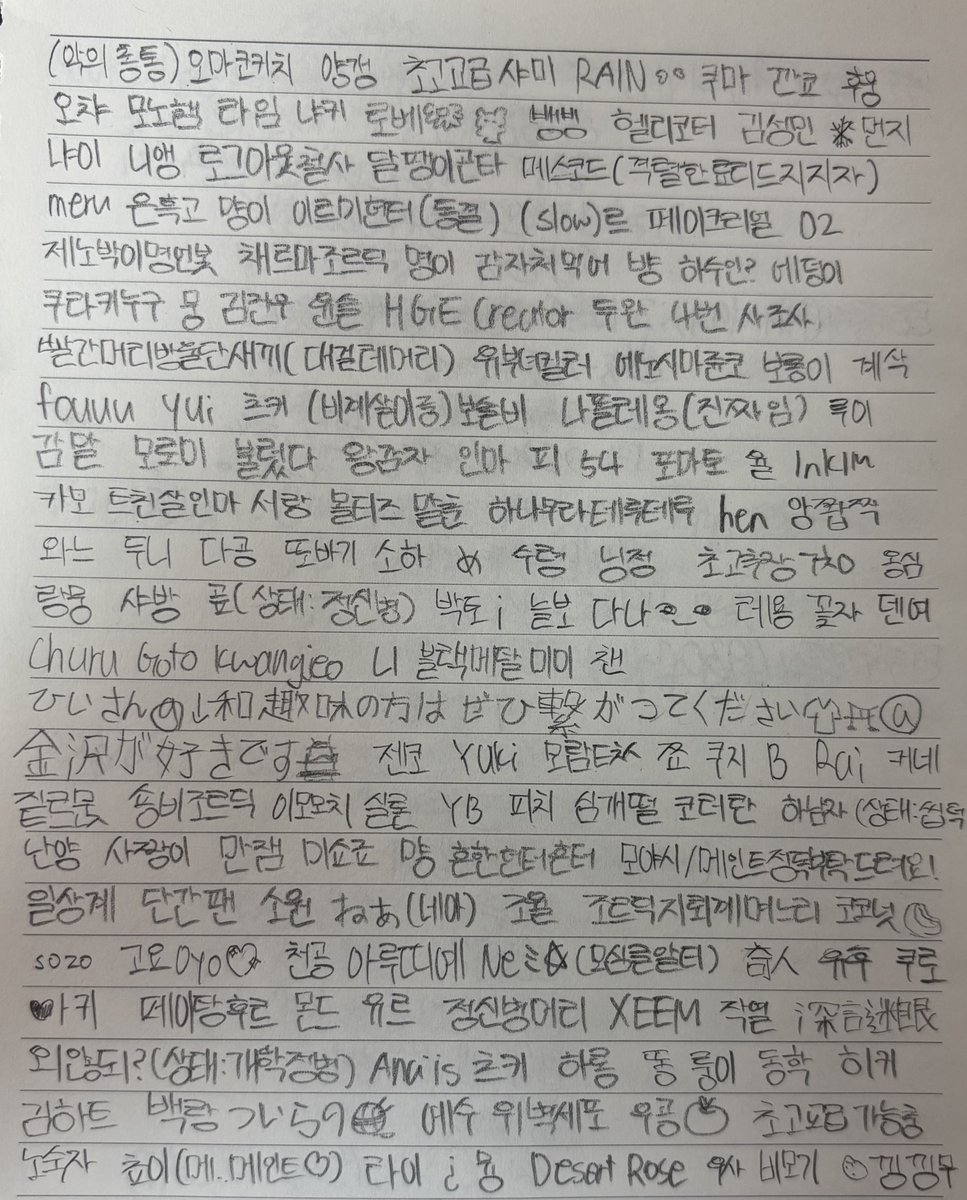 (악의 총통) 오마코키치 양갱 초고교급 샤미 RAIN 쿠마 깐쵸 휴융
오챠 모노햄 타임 냐키 토베 뱅뱅 헬리코터 김성민 먼지
냐이 니앵 로그아웃철사 달땡이곤타 메스코드(격렬한료디드지지자)
meru 은흑고 먕이 이르미헌터(동결) (slow)르 페이크리얼 02
제노박이명언봇 채르마조르딕 명이 감자쳐먹어 뱡 하수인? 에덩이
쿠라키누구 뭉 김칸우 윤슬 HGE Creator 두완 4번 사조사
빨간머리방울단새끼(대걸레머리) 유부녀킬러 에노시마쥰코 보룡이 계삭
fouuu yui 츠키 (비계살이중)보슬비 나폴레옹(진짜임) 루이
감말 모로미 불렀다 왕감자 인마 피 54 포마토 율 InKIM
카모 트친살인마 서랑 몰티즈 말춘 하나무라테루테루 hen 앙쨥쨕
와느 두니 다공 또바기 소하 め 수령 닝정 옹심
랑몽 샤방 곺(상태:정신병) 박도i 늘보 다나 터용 꽃자 덴여
Churu Goto Kwangjeo 니 블택메달 미미 챈
ひじさん 和 趣味の方はぜひ繋がってください @
金沢が好きです 젠코 Yuki 모람 쬬 쿠지 B Rai 커네
짙른봇 송비조르딕 이모모치 실론 YB 피치 쉽개떨 코터탄 하남자 (상태:씹덕
난양 사장이 만잼 미쇼료 먕 흔한헌터헌터 모야시/메인트짐뽝부탁드려요!
일상계 단간팬 소원 ねあ(네아) 조윌 조르딕지퇴께며느리 코코넛
sozo 고요Oyo♡ 천공 아루띠에 Neミ☆(모심른알터) 奇人 유후 쿠로
♥아키 페이탕후르 몬드 유르 정신병어리 XEEM 작열 深言迷眠
외않되?(상태:개학정병) Anais 츠키 하롱 똥 룽이 동학 히키
김하트 백람 ついらの 예수 위벽세포 우공 초고교급가능충
노숙자 쵸이(메..메인트♡) 타이 ¿ 몽 Desert Rose 우사 비모기 낑낑무